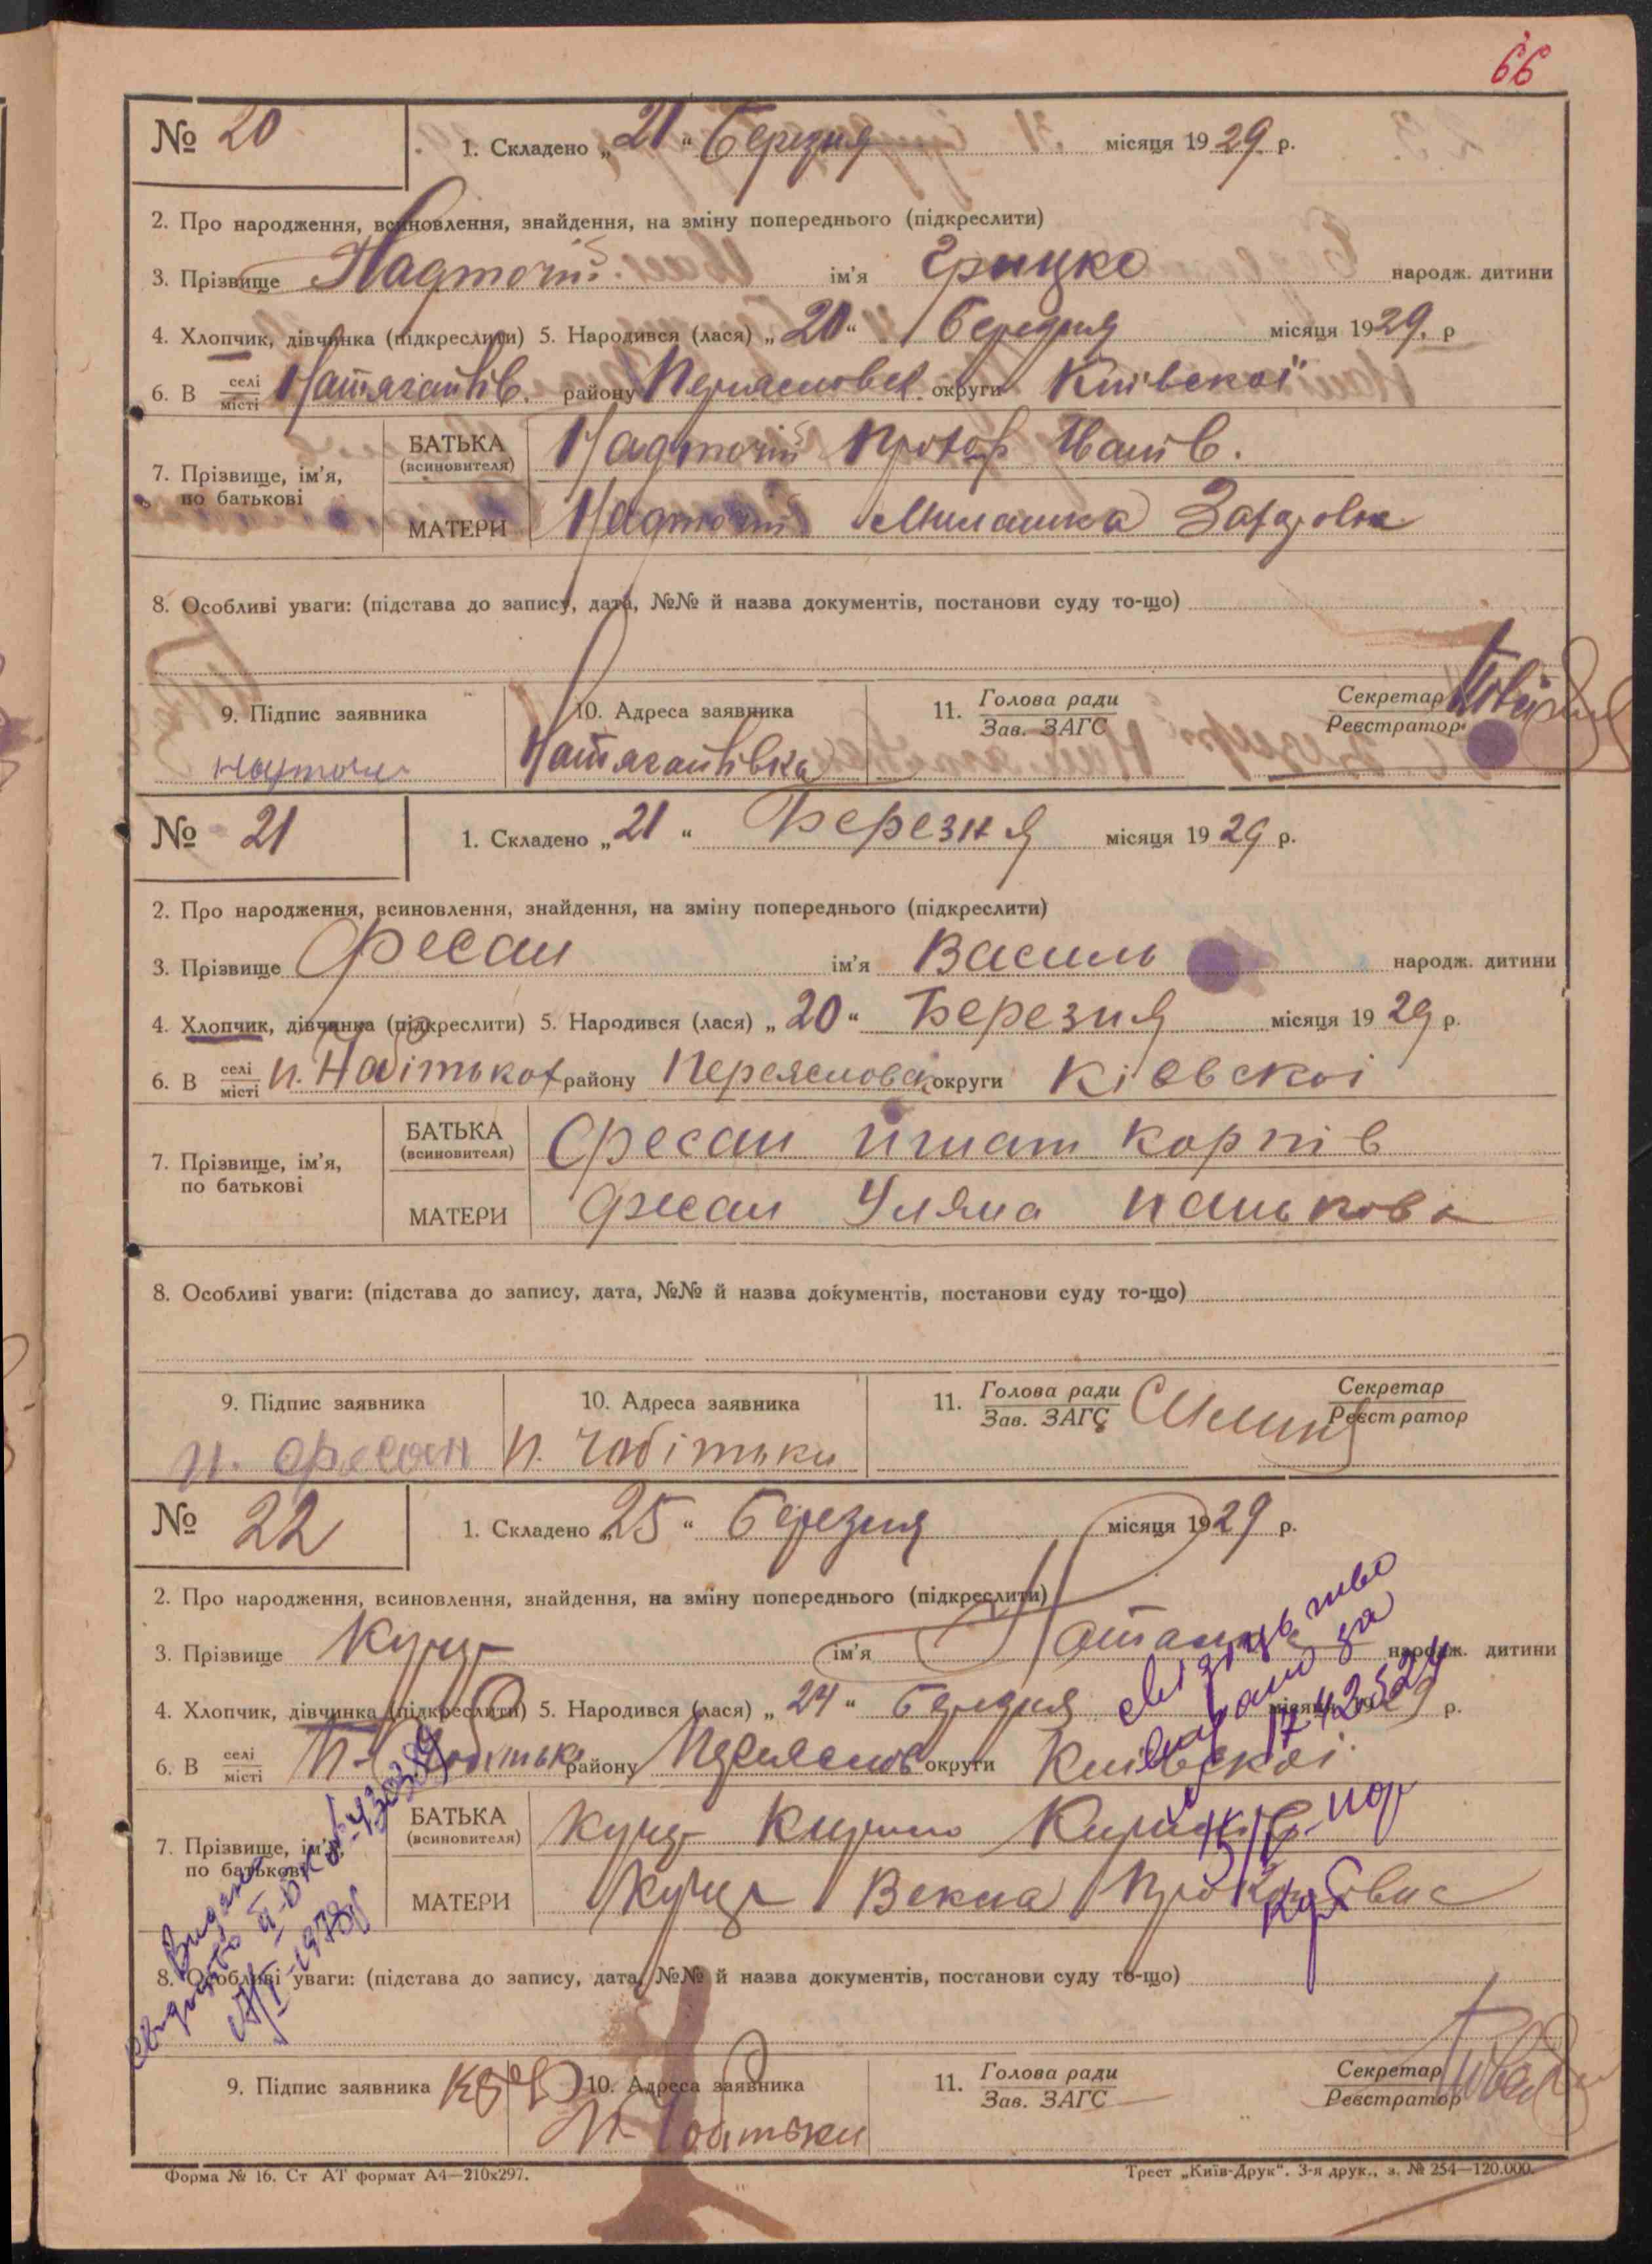 66
№ 20 1. Складено „21“ Березня місяця 1929 р.
2. Про народження, всиновлення, знайдення, на зміну попереднього (підкреслити)
3. Прізвище Надточій ім'я Грицко народж. дитини
4. Хлопчик, дівчинка (підкреслити) 5. Народився (лася) „20“ Березня місяця 1929. р
6. В селі місті району Переясловск. округи Київскої
7. Прізвище, ім'я, по батькові
БАТЬКА (всиновителя) Надточій Прохор Іванів.
МАТЕРИ Надточій Милашка
8. Особливі уваги: (підстава до запису, дата, №№ й назва документів, постанови суду то-що)
9. Підпис заявника 10. Адреса заявника 11. Голова ради Зав. ЗАГС Секретар Реєстратор
№ 21 1. Складено „21“ Березня місяця 1929 р.
2. Про народження, всиновлення, знайдення, на зміну попереднього (підкреслити)
3. Прізвище Фесан ім'я Василь народж. дитини
4. Хлопчик, дівчинка (підкреслити) 5. Народився (лася) „20“ Березня місяця 1929 р.
6. В селі місті району Переясловск округи Кіевскоі
7. Прізвище, ім'я, по батькові
БАТЬКА (всиновителя) Фесан Ігнат Корпів
МАТЕРИ Фесан Уляна Панькова
8. Особливі уваги: (підстава до запису, дата, №№ й назва документів, постанови суду то-що)
9. Підпис заявника 10. Адреса заявника 11. Голова ради Зав. ЗАГС Секретар Реєстратор
п. Чобітьки
№ 22 1. Складено „25“ Березня місяця 1929 р.
2. Про народження, всиновлення, знайдення, на зміну попереднього (підкреслити)
3. Прізвище Куца ім'я народж. дитини
4. Хлопчик, дівчинка (підкреслити) 5. Народився (лася) „24“ Березня місяця 1929 р.
6. В селі місті п. Чобітьки району Переяслов округи Київскоі
7. Прізвище, ім'я, по батькові
БАТЬКА (всиновителя) Куца Кирило
МАТЕРИ Куца Векла
8. Особливі уваги: (підстава до запису, дата, №№ й назва документів, постанови суду то-що)
9. Підпис заявника 10. Адреса заявника 11. Голова ради Зав. ЗАГС Секретар Реєстратор
п. Чобітьки
Форма № 16. Ст АТ формат А4—210х297. Трест „Київ-Друк“. 3-я друк., з. № 254—120.000.